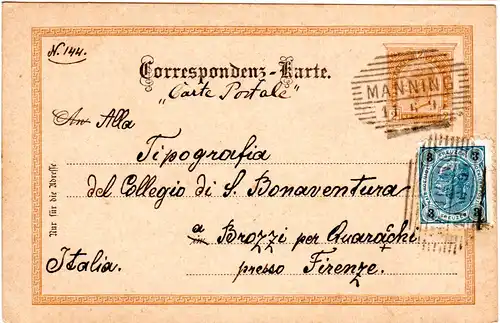 N. 144.
Correspondenz-Karte.
"Carte Postale"
MANNING
An Alla
Tipografia
del Collegio di S. Bonaventura
a
in Brozzi per Quaracchi
Italia. presso Firenze.
Nur für die Adresse
3 3
3 3